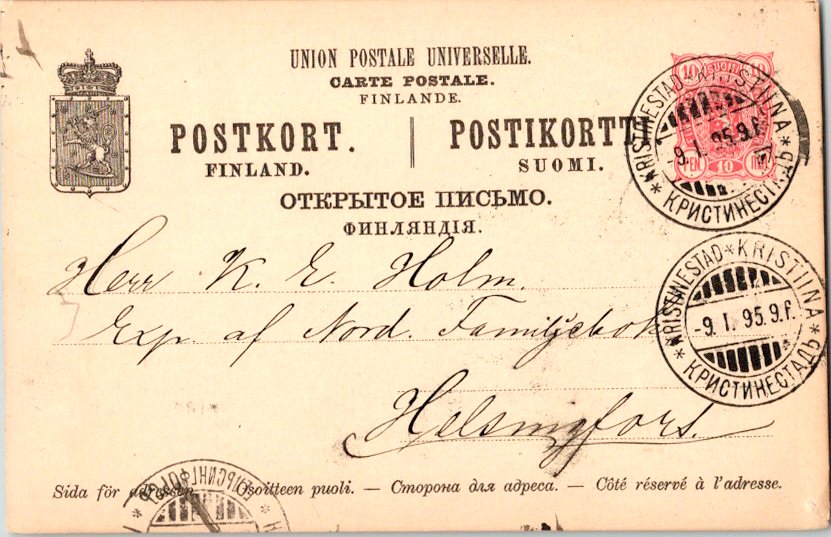 UNION POSTALE UNIVERSELLE.
CARTE POSTALE.
FINLANDE.
POSTKORT.
FINLAND.
POSTIKORTTI
SUOMI.
ОТКРЫТОЕ ПИСЬМО.
ФИНЛЯНДІЯ.
10
PEN
10
KRISTINESTAD * KRISTIINA * КРИСТИНЕСТАДЪ *
-9. 1. 95. 9.f.
Herr K. E. Holm.
Exp. af Nord. Familjebok
Helsingfors.
KRISTINESTAD * KRISTIINA * КРИСТИНЕСТАДЪ *
-9. 1. 95. 9.f.
Sida för adressen. — Osoitteen puoli. — Сторона для адреса. — Côté réservé à l'adresse.